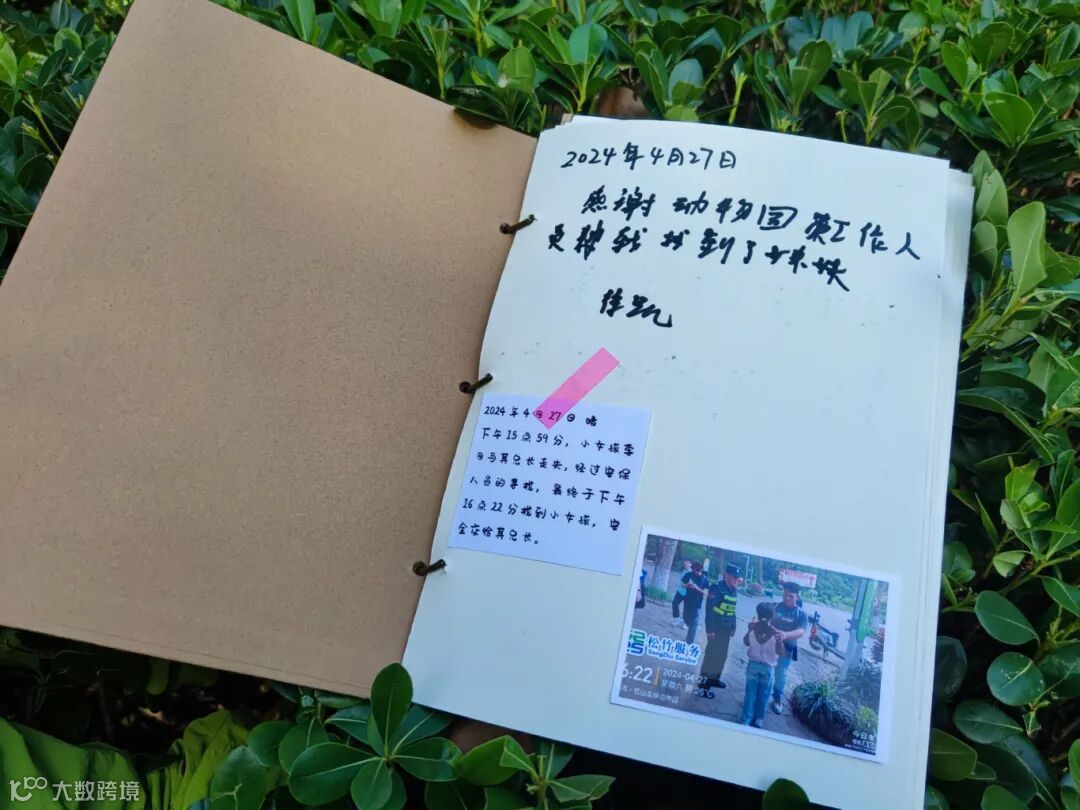 2024年4月27日
感谢动物园的工作人
员帮我找到了妹妹
徐凯
2024年4月27日 晴
下午15点59分,小女孩李
月与其兄长走失,经过安保
人员的寻找,最终于下午
16点22分找到小女孩,安
全交给其兄长。
松竹服务
SongZhu Service
6:22
2024-04-27
星期六
大数跨境